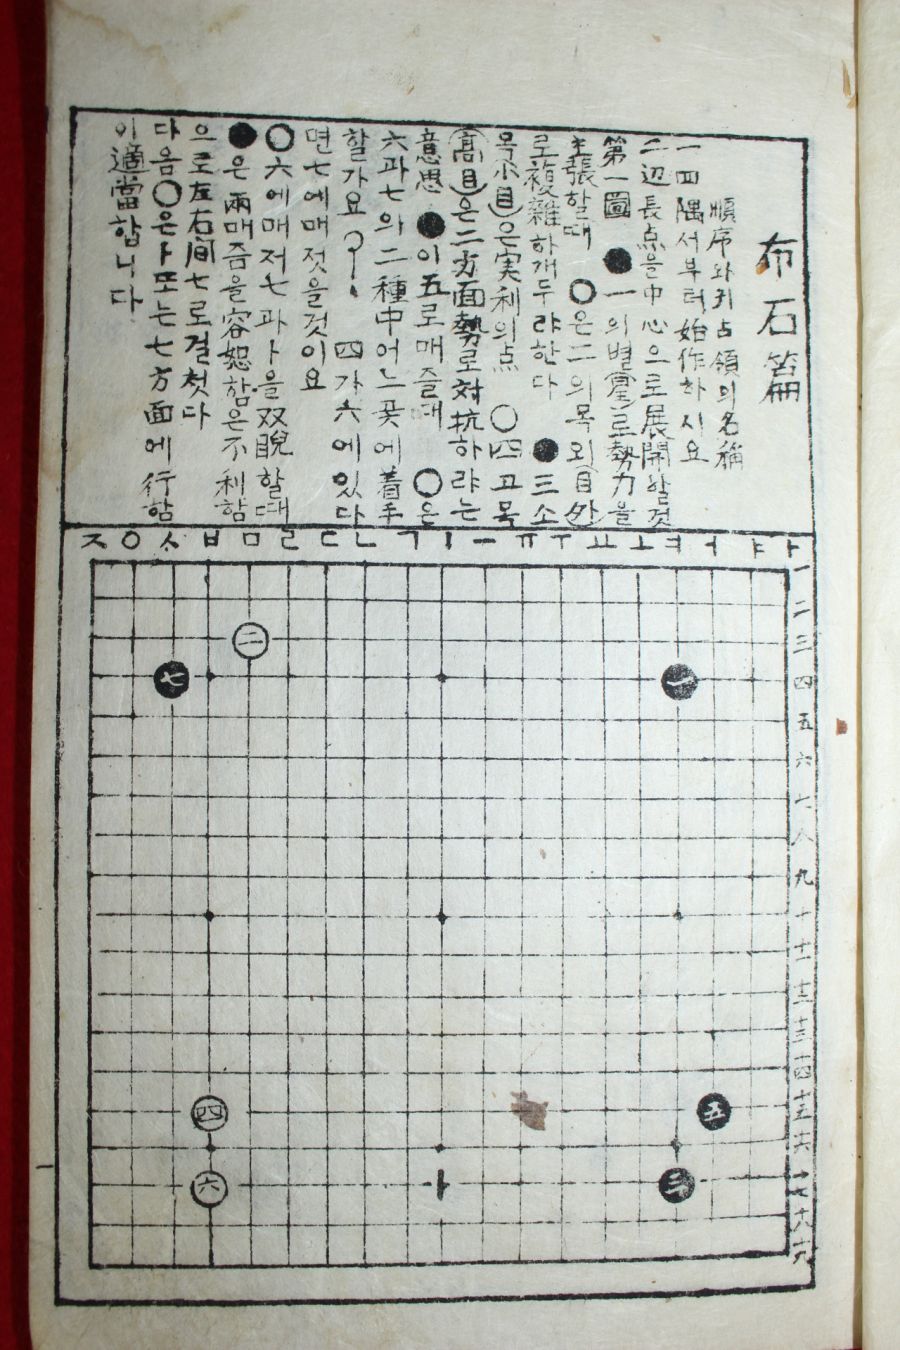 布石篇
順序와 귀占領의 名稱
一 四隅서부터 始作하시요
二 辺長点을 中心으로 展開할 것
第一圖 ● 一의 별 로 勢力을
主張할때 ○은 二의 목외(目外)
로 複雜하개 두랴한다 ● 三 소
목(小目)은 実利의 点 ○四 고목
(高目)은 二方面勢로 対抗하랴는
意思 ● 이 五로 매즐때 ○은
六과 七의 二種中 어느 곳에 着手
할가요? 四가 六에 있다
면 七에 매젓을것이요
○ 六에 매저 七과 ㅏ을 双 할때
● 은 兩매즘을 容恕함은 不利함
으로 左右间 七로 결첫다
다음 ○은 ㅏ 또는 七方面에 行함
이 適當합니다
ㅈ ㅇ ㅅ ㅂ ㅁ ㄹ ㄷ ㄴ ㄱ ㅣ ㅡ ㅠ ㅜ ㅛ ㅗ ㅕ ㅓ ㅑ ㅏ
一
二
三
四
五
六
七
八
九
十
十一
十二
十三
十四
十五
十六
十七
十八
十九
二
七
一
四
五
六
ㅏ
三